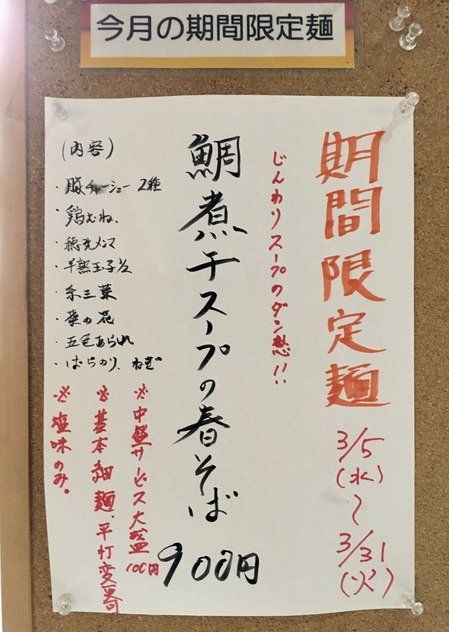 今月の期間限定麺
期間限定麺
3/5
(水)
〜
3/31
(火)
じんわりスープのダン憩!!
鯛煮干スープの春そば
900円
(内容)
・豚チャーシュー 2種
・鶏むね、
・穂先メンマ
・半熟玉子1/2
・糸三葉
・菜の花
・五色あられ
・ばらのり、ねぎ
※中盛サービス大盛100円
※基本細麺・平打変更可
※塩味のみ。